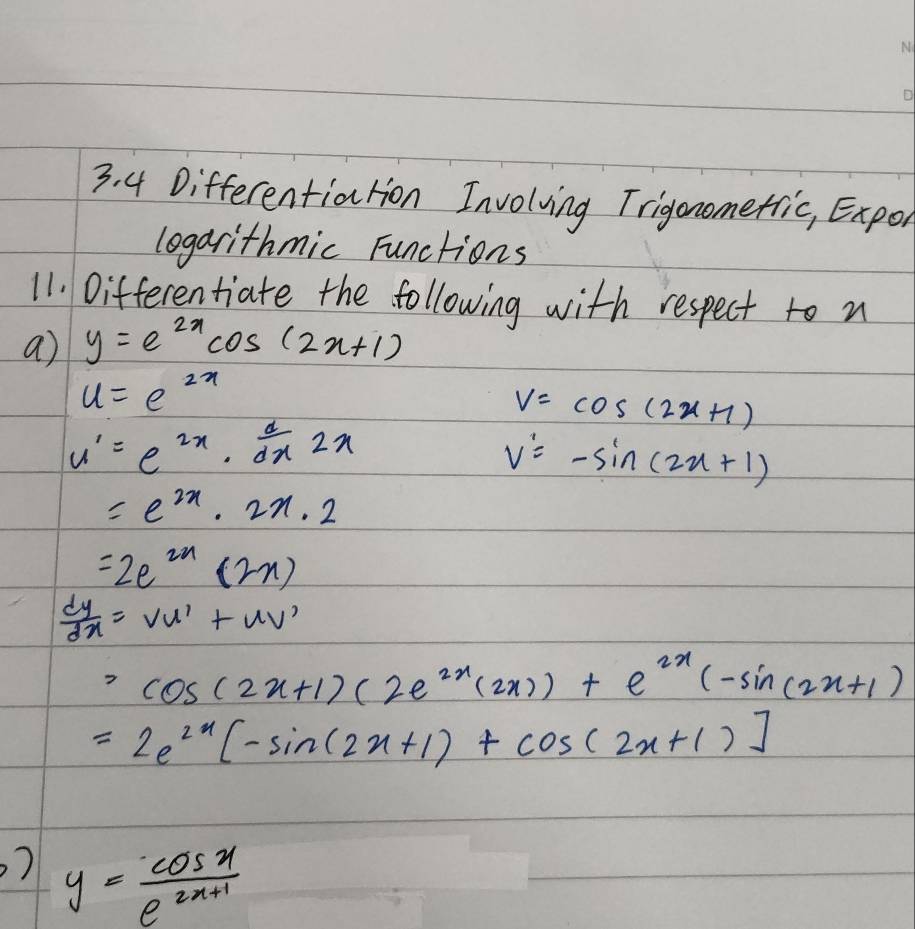 N
D
3.4 Differentiation Involving Trigonometric, Expon
logarithmic Functions
11. Differentiate the following with respect to x
a) y = e^{2x} cos (2x+1)
u = e^{2x}    v = cos (2x+1)
u' = e^{2x} . d/dx 2x    v' = -sin (2x+1)
= e^{2x} . 2x . 2
= 2e^{2x} (2x)
dy/dx = vu' + uv'
= cos (2x+1) (2e^{2x} (2x)) + e^{2x} (-sin (2x+1)
= 2e^{2x} [-sin(2x+1) + cos (2x+1)]
b) y = cos x / e^{2x+1}